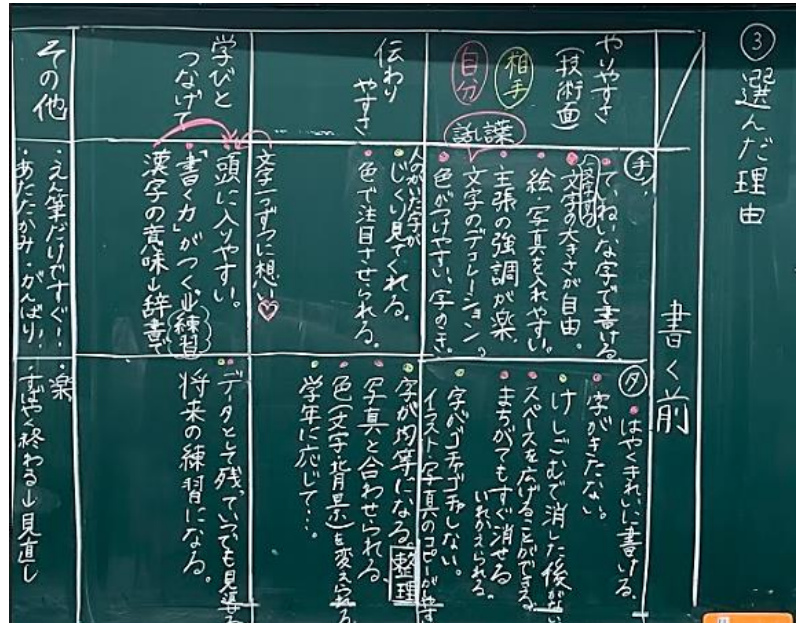 ③選んだ理由
書く前
やりやすさ
(技術面)
相手
自分
手
ていねいな字で書ける。
文字の大きさが自由。
絵・写真を入れやすい。
主張の強調が楽。
文字のデコレーション。
色がつけやすい、字の
話し言葉
タ
はやくきれいに書ける。
字がきたない。
けしごむで消した後がない
スペースを広げることができる
まちがてもすぐ消せる
いれかえられる。
字がゴチャゴチャしない。
イラスト・写真のコピーがやす
伝わり
やすさ
人のかいた字が
じっくり見てくれる。
色で注目させられる。
字が均等になる 整理
写真と合わせられる
色(文字背景)を変えられる
学年に応じて…。
学びと
つなげて
文字一つずつに想い
頭に入りやすい。
「書く力」がつく。↓練習
漢字の意味↓辞書で
データとして残っていつでも
将来の練習になる。
その他
・えん筆だけですぐ!!
・あたたかみ・がんばり!
・楽
・すばやく終わる↓見直し